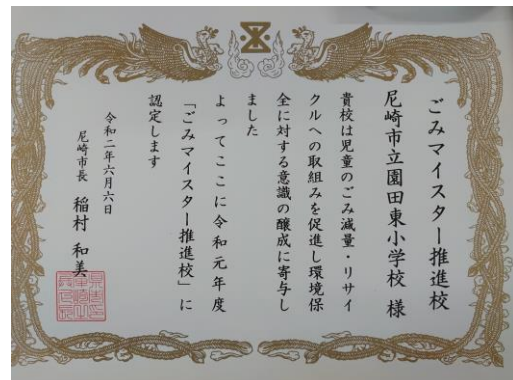 ごみマイスター推進校
尼崎市立園田東小学校 様
貴校は児童のごみ減量・リサイ
クルへの取組みを促進し環境保
全に対する意識の醸成に寄与し
ました
よってここに令和元年度
「ごみマイスター推進校」に
認定します
令和二年六月六日
尼崎市長 稲村 和美